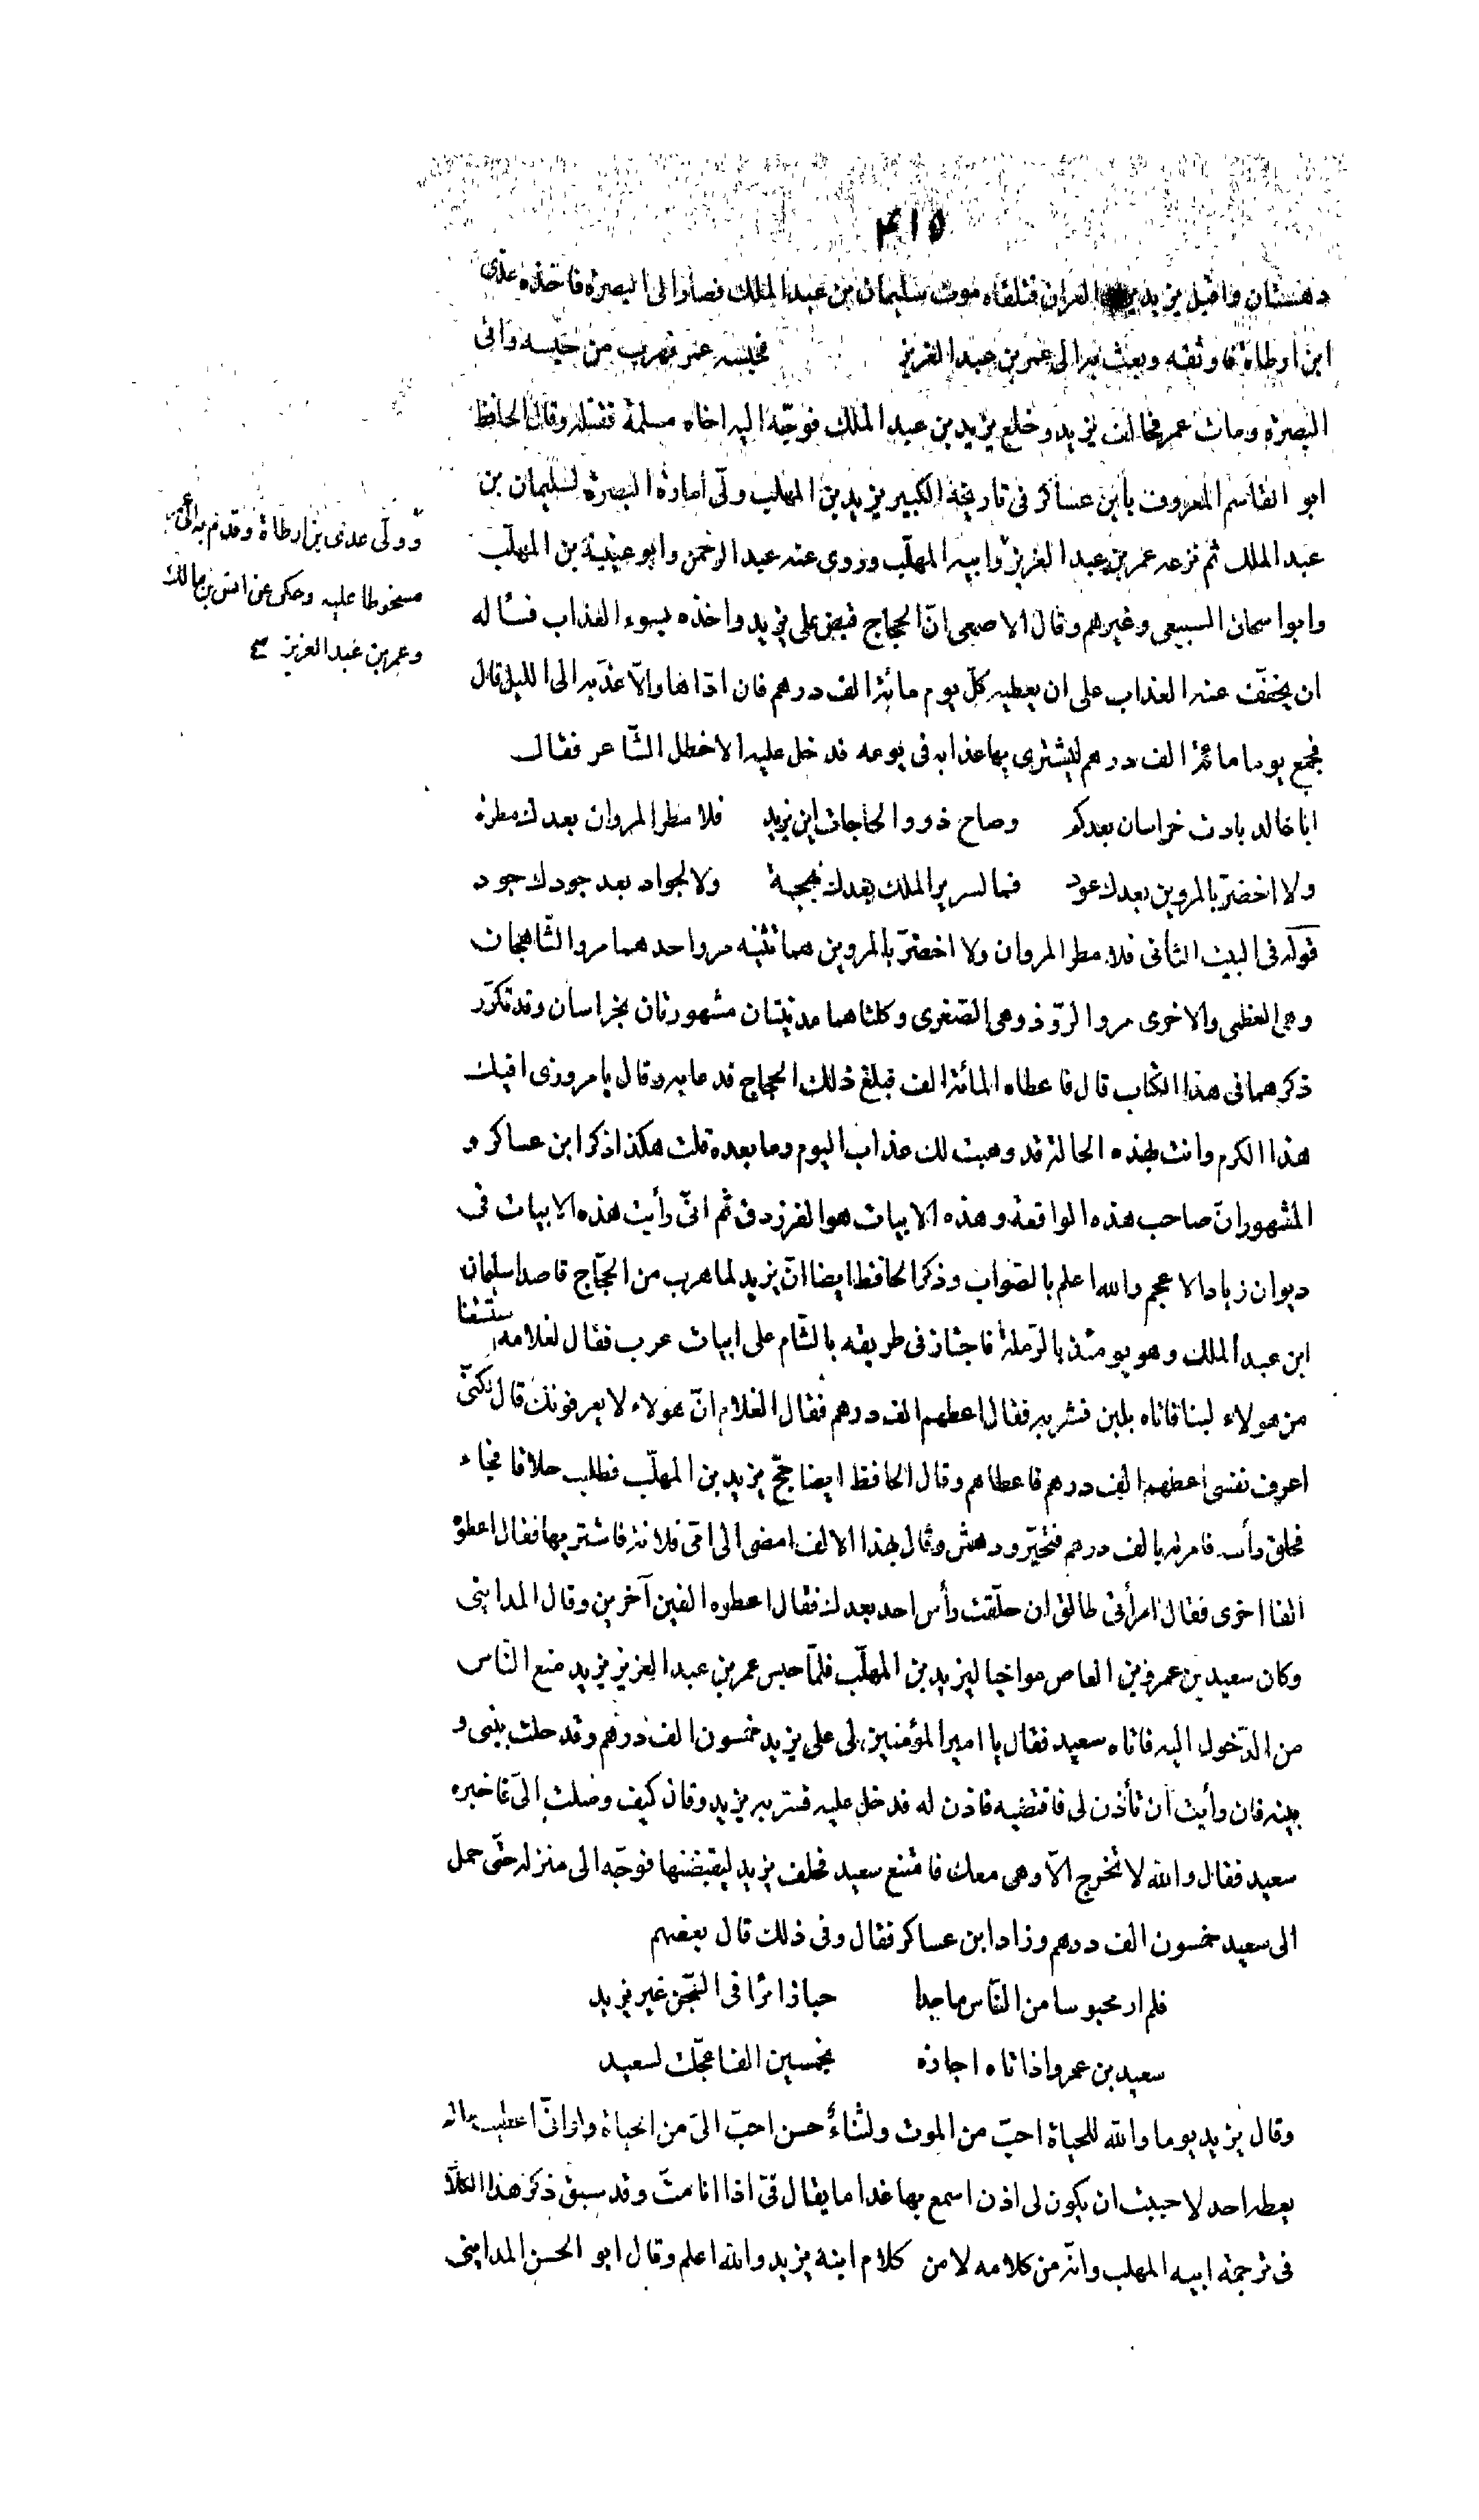 ٤١٥
دهستان واقبل يزيد يريد العراق فتلقاه موت سليمان بن عبد الملك فصار الى البصرة فاخذه عدى
ابن ارطاة فاوثقه وبعث به الى عمر بن عبد العزيز فحبسه عمر فهرب من حبسه واتى
البصرة ومات عمر فخالف يزيد وخلع يزيد بن عبد الملك فوجّه اليه اخاه مسلمة فقتله وقال الحافظ
ابو القاسم المعروف بابن عساكر فى تاريخه الكبير يزيد بن المهلب ولّى امارة البصرة لسليمان بن
عبد الملك ثم نزعه عمر بن عبد العزيز وابيه المهلّب وروى عنه عبد الرحمن وابو عيينة بن المهلّب
وابو اسحاق السبيعى وغيرهم وقال الاصمعى انّ الحجاج قبض على يزيد واخذه بسوء العذاب فسأله
ان يخفّف عنه العذاب على ان يعطيه كلّ يوم مائة الف درهم فان ادّاها والّا عذّبه الى الليل قال
فجمع يوما مائة الف درهم ليشترى بها عذابه فى يومه فدخل عليه الاخطل الشّاعر فقال
ابا خالد بادت خراسان بعدكم وصاح ذوو الحاجات اين يزيد فلا مطر المروان بعدك مطرة
ولا اخضرّ بالمروين بعدك عود فما لسرير الملك بعدك بهجة ولا لجواد بعد جودك جود
قوله فى البيت الثانى فلا مطر المروان ولا اخضرّ بالمروين هما تثنية مرو احدهما مرو الشّاهجان
وهى العظمى والاخرى مرو الرّوذ وهى الصّغرى وكلتاهما مدينتان مشهورتان بخراسان وقد تكرّر
ذكرهما فى هذا الكتاب قال فاعطاه المائة الف فبلغ ذلك الحجاج فدعا به وقال يا مروزى افيك
هذا الكرم وانت بهذه الحالة قد وهبت لك عذاب اليوم وما بعده قلت هكذا ذكر ابن عساكر و
المشهور انّ صاحب هذه الواقعة وهذه الابيات هو الفرزدق ثم انّى رأيت هذه الابيات فى
ديوان زياد الاعجم والله اعلم بالصّواب وذكر الحافظ ايضا انّ يزيد لما هرب من الحجّاج قاصدا سليمان
ابن عبد الملك وهو يومئذ بالرّملة فاجتاز فى طريقه بالشّام على ابيات عرب فقال لغلامه استسقنا
من هولاء لبنا فاتاه بلبن فشربه فقال اعطهم الف درهم فقال الغلام انّ هولاء لا يعرفونك قال لكنّى
اعرف نفسى اعطهم الف درهم فاعطاهم وقال الحافظ ايضا حجّ يزيد بن المهلّب فطلب حلاقا فجاء
فحلق رأسه فامر له بالف درهم فتحيّر ودهش وقال بهذا الالف امضى الى امّى فلانة فاشتريها فقال اعطوه
الفا اخرى فقال امرأتى طالق ان حلّقت رأس احد بعدك فقال اعطوه الفين آخرين وقال المداينى
وكان سعيد بن عمرو بن العاص مواخيا ليزيد بن المهلّب فلمّا حبس عمر بن عبد العزيز يزيد منع النّاس
من الدّخول اليه فاتاه سعيد فقال يا امير المؤمنين لى على يزيد خمسون الف درهم وقد حلت بينى و
بينه فان رأيت ان تأذن لى فاقتضيه فاذن له فدخل عليه فسرّ به يزيد وقال كيف وصلت الىّ فاخبره
سعيد فقال والله لا تخرج الّا وهى معك فامتنع سعيد فحلف يزيد ليقبضنها فوجّه الى منزله حتّى حمل
الى سعيد خمسون الف درهم وزاد ابن عساكر فقال وفى ذلك قال بعضهم
فلم ار محبوسا من النّاس ماجدا حبا زائرا فى السّجن غير يزيد
سعيد بن عمرو اذ اتاه اجازه بخمسين الفا عجّلت لسعيد
وقال يزيد يوما والله للحياة احبّ من الموت ولثناء حسن احبّ الىّ من الحياة ولو انّى اعطيت ما لم
يعطه احد لاحببت ان يكون لى اذن اسمع بها غدا ما يقال فىّ اذا انا متّ وقد سبق ذكر هذا الكلام
فى ترجمة ابيه المهلب وانّه من كلامه لا من كلام ابنه يزيد والله اعلم وقال ابو الحسن المداينى
وولّى عدى بن ارطاة وقدم به الى عمر
مسخوطا عليه وحكى عن انس بن مالك
وعمر بن عبد العزيز